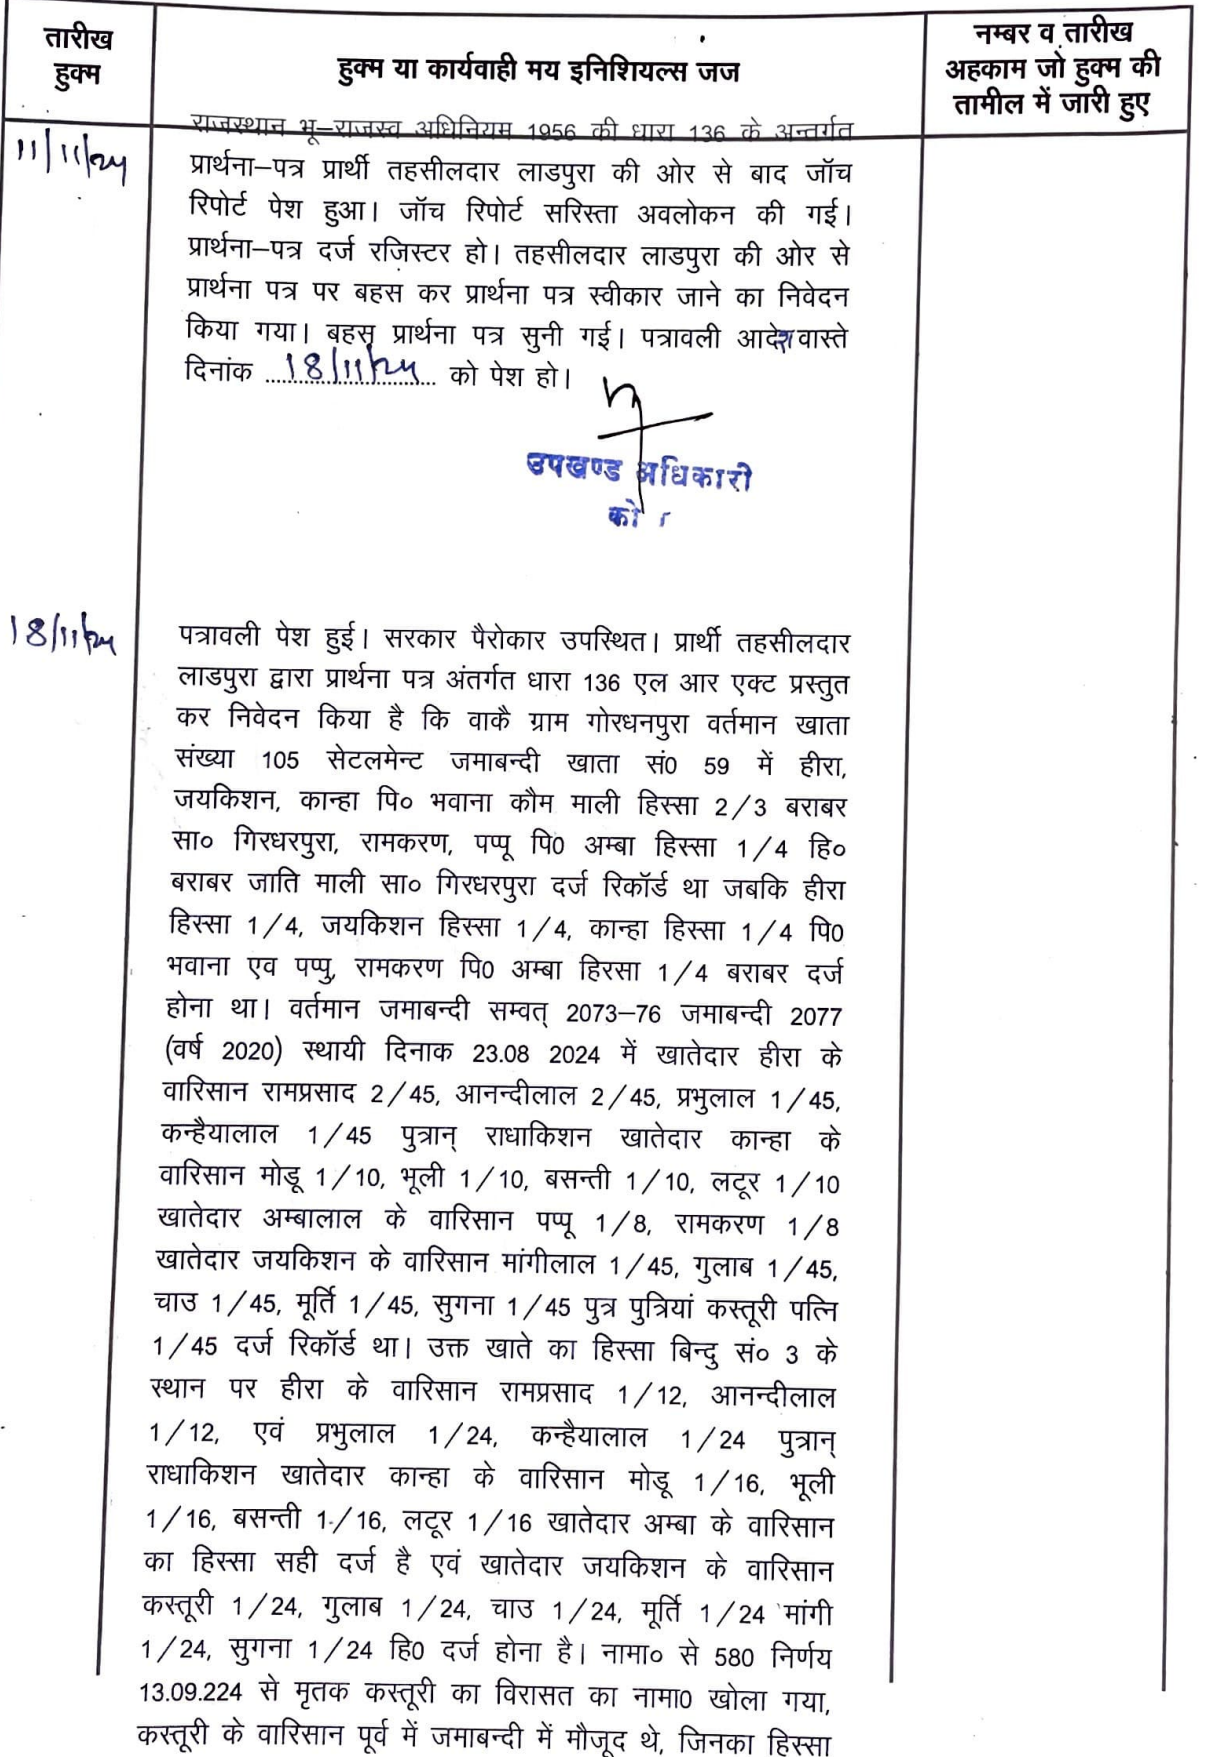 तारीख
हुक्म
हुक्म या कार्यवाही मय इनिशियल्स जज
नम्बर व तारीख
अहकाम जो हुक्म की
तामील में जारी हुए
राजस्थान भू–राजस्व अधिनियम 1956 की धारा 136 के अन्तर्गत
11/11/24
प्रार्थना–पत्र प्रार्थी तहसीलदार लाडपुरा की ओर से बाद जॉच
रिपोर्ट पेश हुआ। जॉच रिपोर्ट सरिस्ता अवलोकन की गई।
प्रार्थना–पत्र दर्ज रजिस्टर हो। तहसीलदार लाडपुरा की ओर से
प्रार्थना पत्र पर बहस कर प्रार्थना पत्र स्वीकार जाने का निवेदन
किया गया। बहस प्रार्थना पत्र सुनी गई। पत्रावली आदेश वास्ते
दिनांक 18/11/24 को पेश हो।
उपखण्ड अधिकारी
को
18/11/24
पत्रावली पेश हुई। सरकार पैरोकार उपस्थित। प्रार्थी तहसीलदार
लाडपुरा द्वारा प्रार्थना पत्र अंतर्गत धारा 136 एल आर एक्ट प्रस्तुत
कर निवेदन किया है कि वाकै ग्राम गोरधनपुरा वर्तमान खाता
संख्या 105 सेटलमेन्ट जमाबन्दी खाता सं0 59 में हीरा,
जयकिशन, कान्हा पि० भवाना कौम माली हिस्सा 2/3 बराबर
सा० गिरधरपुरा, रामकरण, पप्पू पि0 अम्बा हिस्सा 1/4 हि०
बराबर जाति माली सा० गिरधरपुरा दर्ज रिकॉर्ड था जबकि हीरा
हिस्सा 1/4, जयकिशन हिस्सा 1/4, कान्हा हिस्सा 1/4 पि0
भवाना एव पप्पु, रामकरण पि0 अम्बा हिरसा 1/4 बराबर दर्ज
होना था। वर्तमान जमाबन्दी सम्वत् 2073–76 जमाबन्दी 2077
(वर्ष 2020) स्थायी दिनाक 23.08 2024 में खातेदार हीरा के
वारिसान रामप्रसाद 2/45, आनन्दीलाल 2/45, प्रभुलाल 1/45,
कन्हैयालाल 1/45 पुत्रान् राधाकिशन खातेदार कान्हा के
वारिसान मोडू 1/10, भूली 1/10, बसन्ती 1/10, लटूर 1/10
खातेदार अम्बालाल के वारिसान पप्पू 1/8, रामकरण 1/8
खातेदार जयकिशन के वारिसान मांगीलाल 1/45, गुलाब 1/45,
चाउ 1/45, मूर्ति 1/45, सुगना 1/45 पुत्र पुत्रियां कस्तूरी पत्नि
1/45 दर्ज रिकॉर्ड था। उक्त खाते का हिस्सा बिन्दु सं० 3 के
स्थान पर हीरा के वारिसान रामप्रसाद 1/12, आनन्दीलाल
1/12, एवं प्रभुलाल 1/24, कन्हैयालाल 1/24 पुत्रान्
राधाकिशन खातेदार कान्हा के वारिसान मोडू 1/16, भूली
1/16, बसन्ती 1/16, लटूर 1/16 खातेदार अम्बा के वारिसान
का हिस्सा सही दर्ज है एवं खातेदार जयकिशन के वारिसान
कस्तूरी 1/24, गुलाब 1/24, चाउ 1/24, मूर्ति 1/24 मांगी
1/24, सुगना 1/24 हि0 दर्ज होना है। नामा० से 580 निर्णय
13.09.224 से मृतक कस्तूरी का विरासत का नामा0 खोला गया,
कस्तूरी के वारिसान पूर्व में जमाबन्दी में मौजूद थे, जिनका हिस्सा